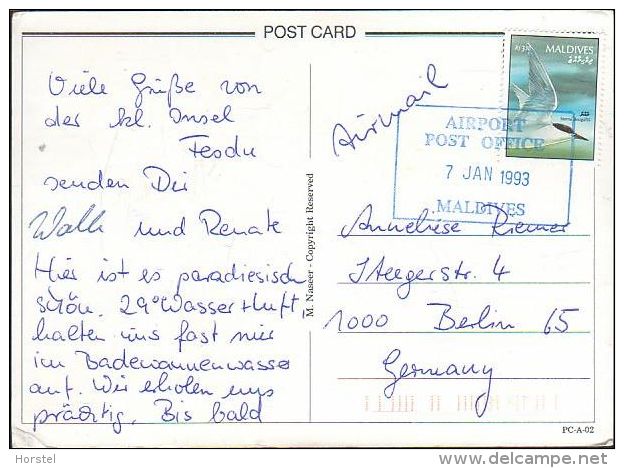 POST CARD
MALDIVES
Viele Grüße von
der kl. Insel
Fesdu
senden Dir
und Renate
Hier ist es paradiesisch
schön. 29° Wasser + Luft,
halten uns fast nur
im Badewannenwasser
auf. Wir erholen uns
prächtig. Bis bald
M. Naseer - Copyright Reserved
Airmail
AIRPORT
POST OFFICE
7 JAN 1993
MALDIVES
Anneliese Riemer
4
1000 Berlin 65
Germany
PC-A-02
Horstel
www.delcampe.net